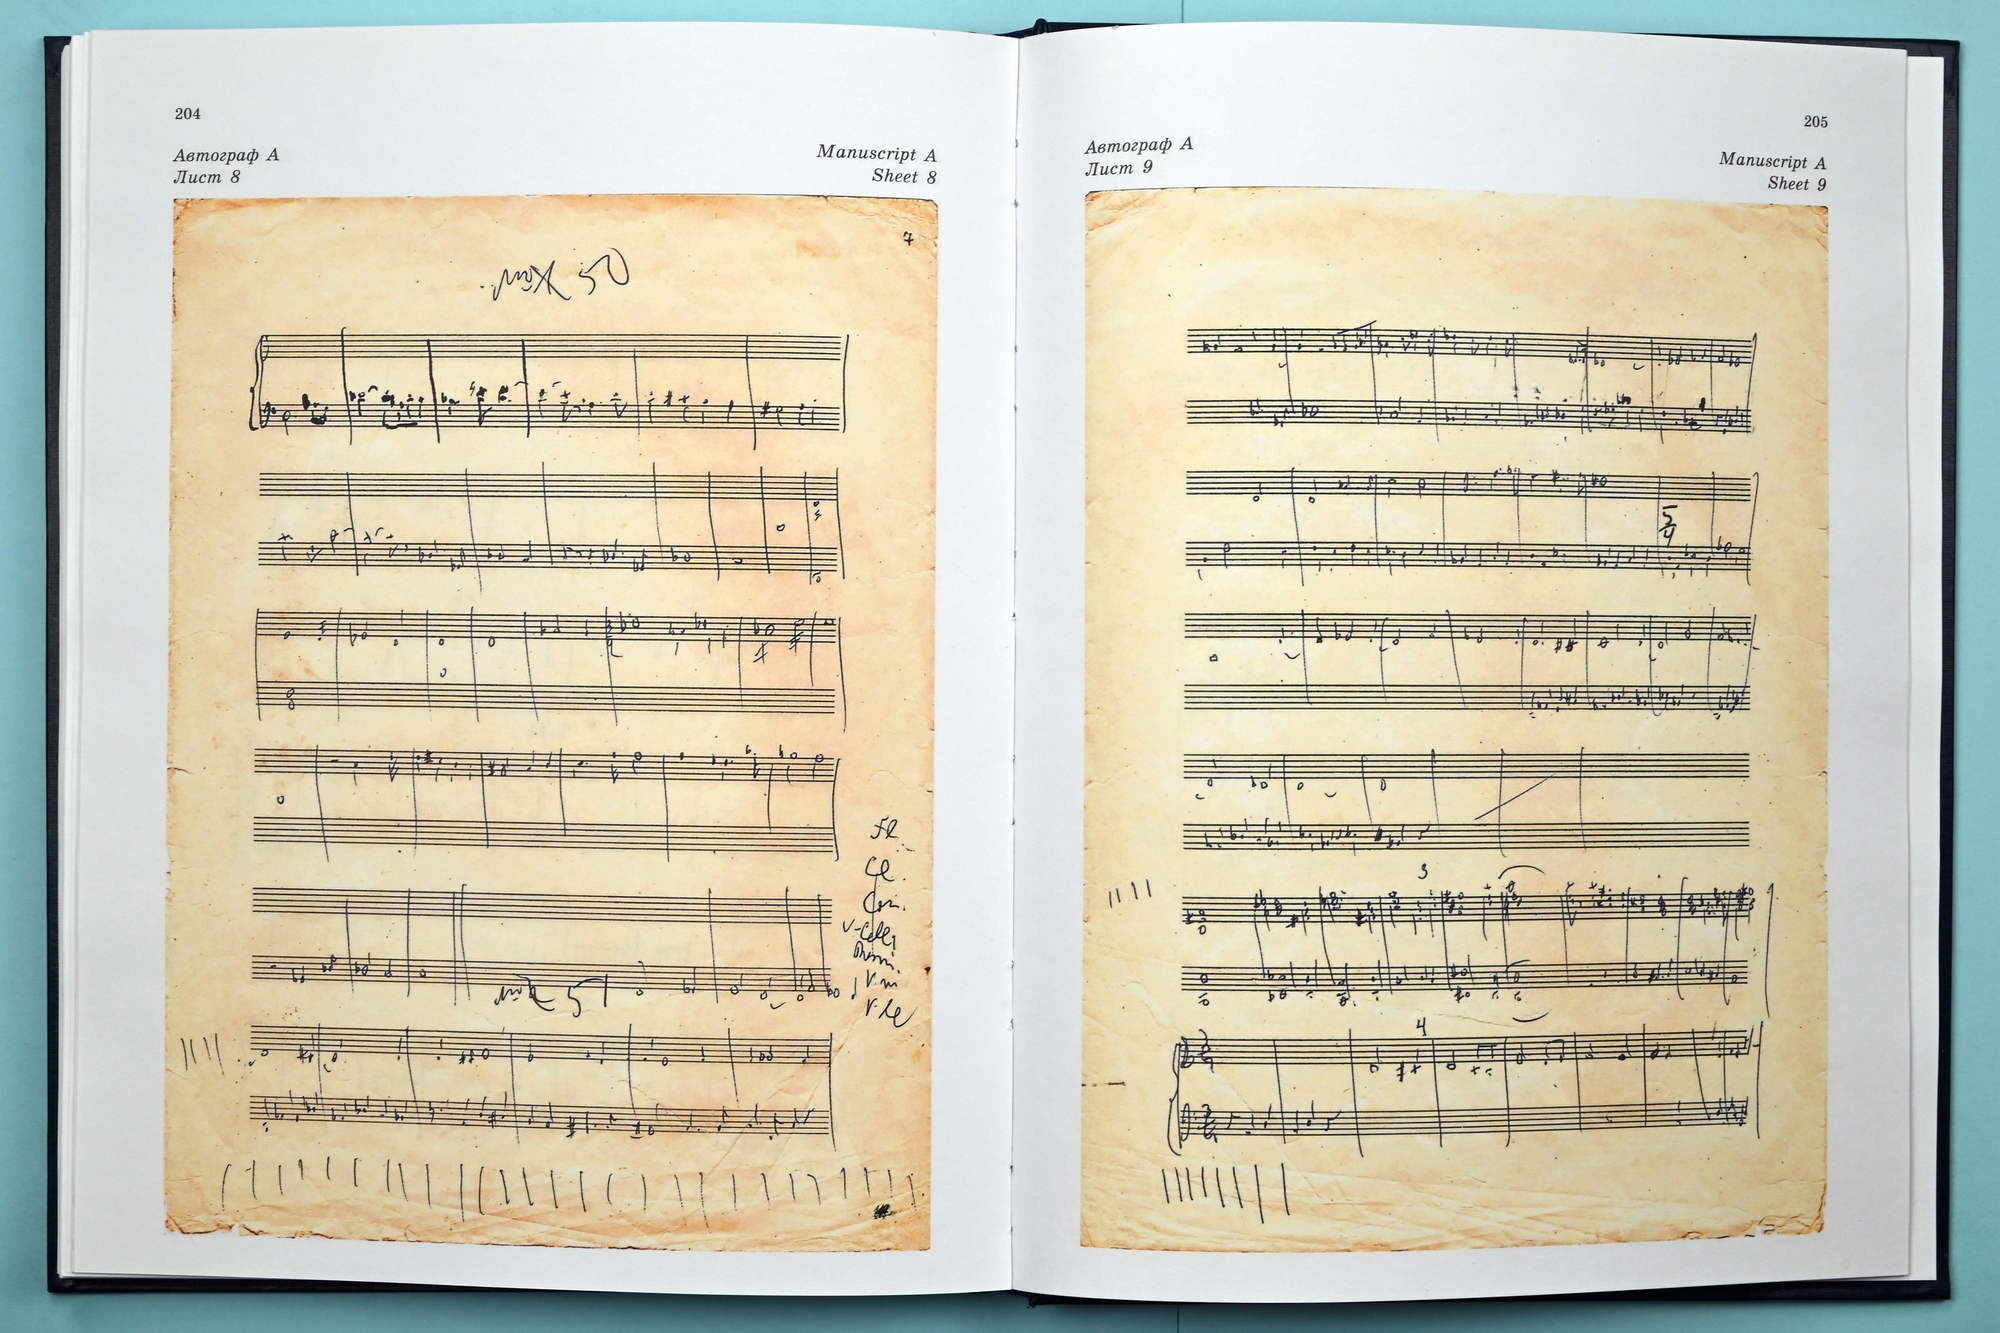 204
Автограф А
Лист 8
Manuscript A
Sheet 8
7
50
Fl.
Cl.
Cor.
V-celli
V-ni
V-le
51
205
Автограф А
Лист 9
Manuscript A
Sheet 9
5
4
3
4